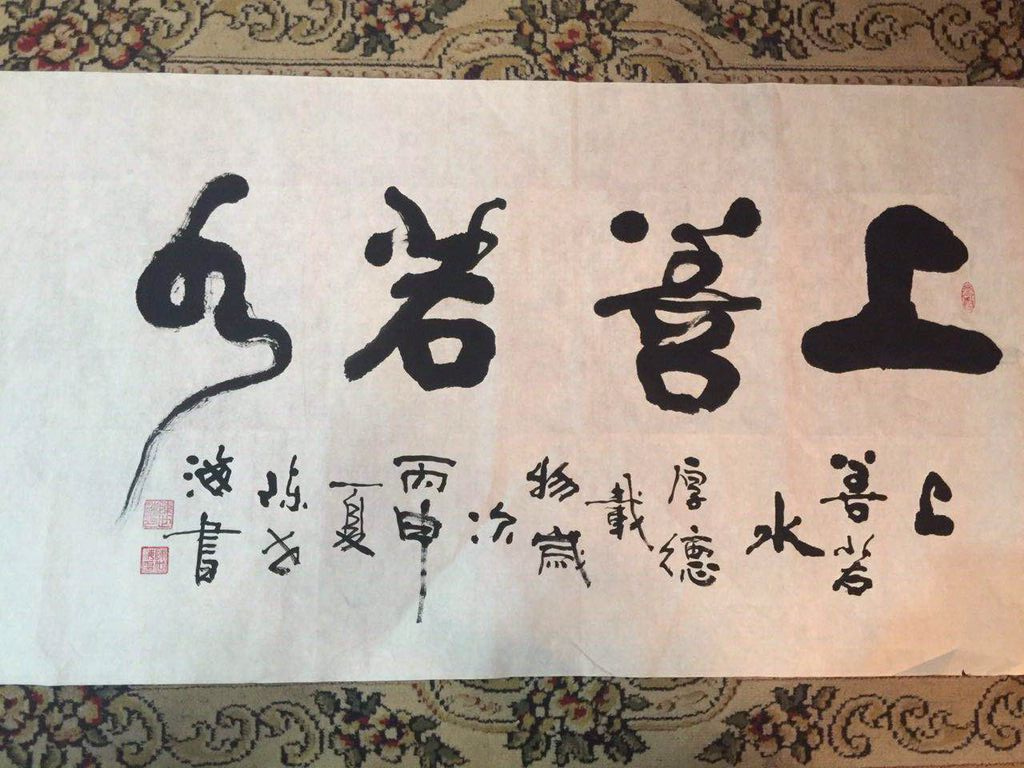 上善若水
上
善若
水
厚德
載
物歲
次
丙申
夏
陈世
海書